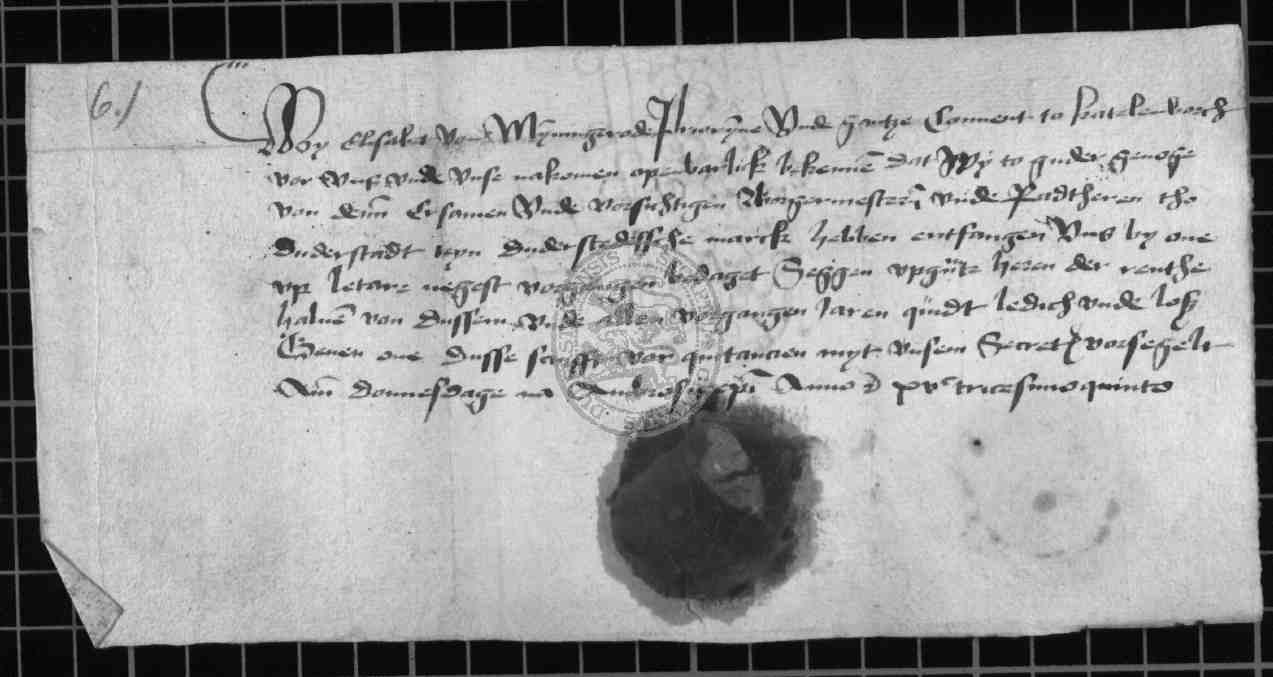 6.)
Wy Elsabet von Mynnigerode Priorynne Vnde gantze Conuent to Katelenborch
vor vns vnde vnse nakomen openbarlick bekennen dat Wy to guder genoge
von denn Ersamen Vnde vorsichtigen Borgermestern vnde Radtheren tho
Duderstadt teyn Duderstedissche marck hebben entfangen Vns by one
vp letare negest vorgangen bedaget Seggen vpgnte heren der renthe
haluen von dussem vnde allen vorgangen Jaren quidt ledich vnde loß
Geuen one dusse schrifft vor quitancien myt vnsem Secret vorsegelt
Am donnersdage na Ambrosij epi Anno d xvc tricesimoquinto